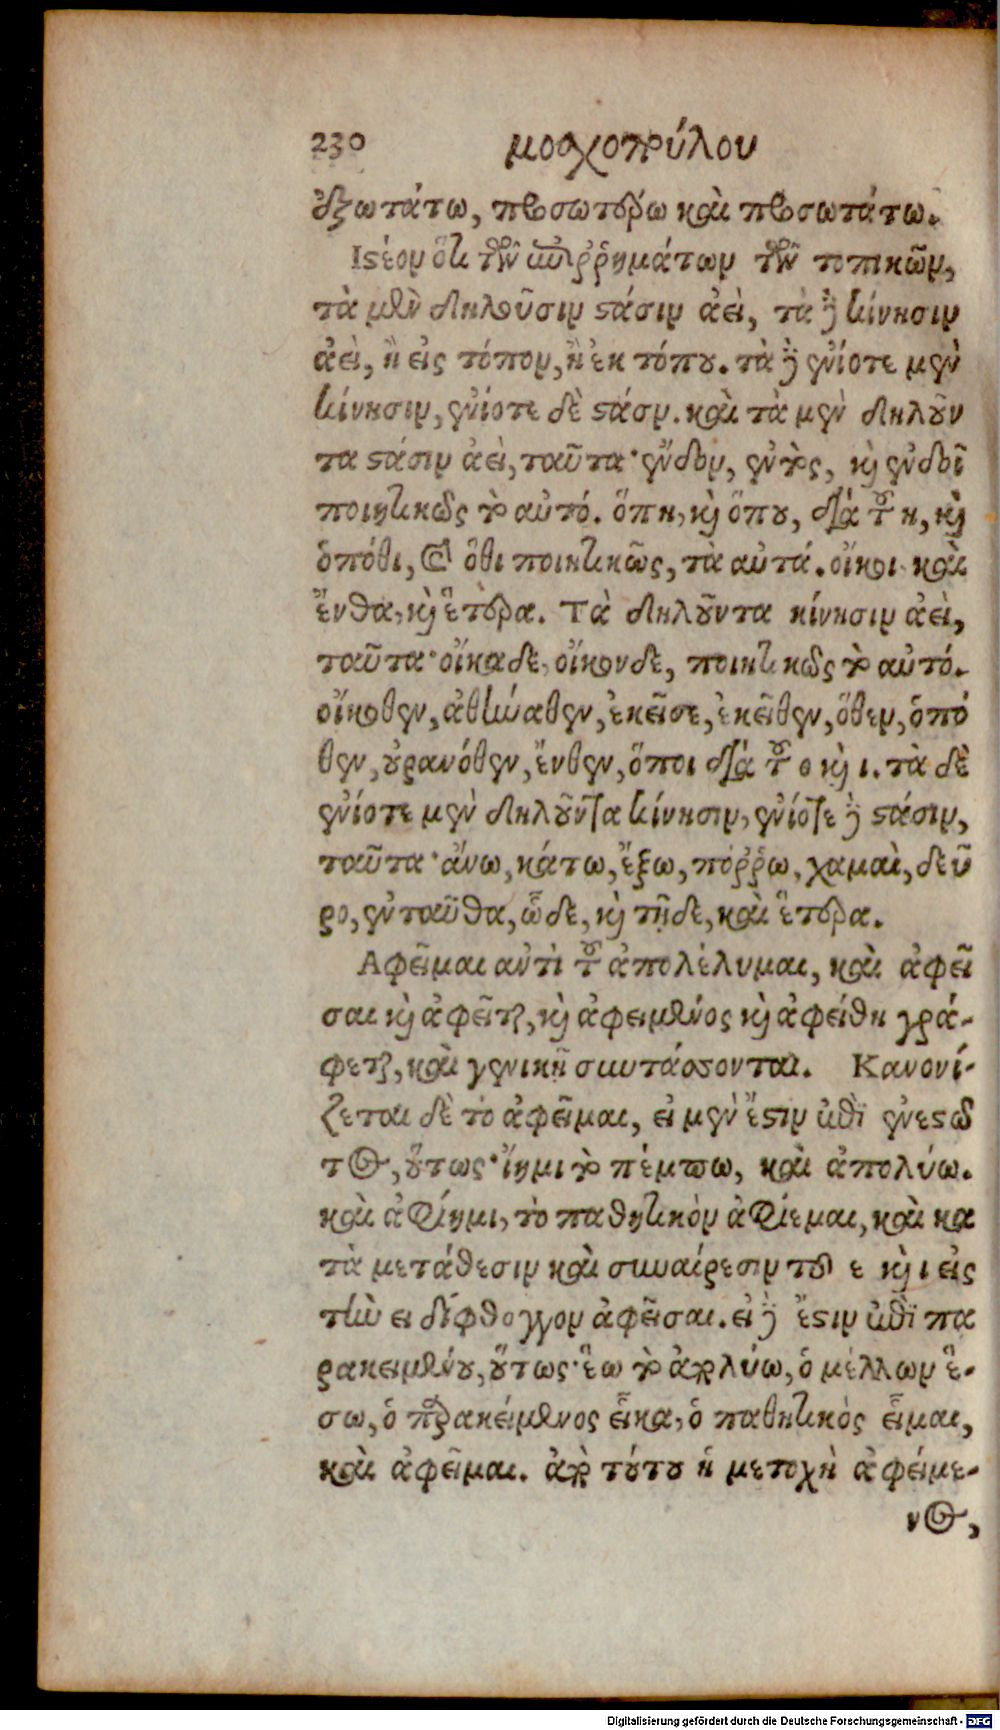 230 μοσχοπούλου
ἐξωτάτω, προσωτέρω καὶ προσωτάτω.
Ιστέον ὅτι τῶν ἐπιῤῥημάτων τῶν τοπικῶν,
τὰ μὲν δηλοῦσιν στάσιν ἀεὶ, τὰ δὲ κίνησιν
ἀεὶ, ἢ εἰς τόπον, ἢ ἐκ τόπου. τὰ δὲ ἐνίοτε μὲν
κίνησιν, ἐνίοτε δὲ στάσιν. καὶ τὰ μὲν δηλοῦν
τα στάσιν ἀεὶ, ταῦτα· ἔνδον, ἐντὸς, καὶ ἐνδοῖ
ποιητικῶς τὸ αὐτό. ὅπη, καὶ ὅπου, διὰ τοῦ η, καὶ
ὁπόθι, καὶ ὅθι ποιητικῶς, τὰ αὐτά. οἴκοι καὶ
ἔνθα, καὶ ἕτερα. Τὰ δηλοῦντα κίνησιν ἀεὶ,
ταῦτα· οἴκαδε, οἴκονδε, ποιητικῶς τὸ αὐτό.
οἴκοθεν, ἀθήναθεν, ἐκεῖσε, ἐκεῖθεν, ὅθεν, ὁπό
θεν, οὐρανόθεν, ἔνθεν, ὅποι διὰ τοῦ ο καὶ ι. τὰ δὲ
ἐνίοτε μὲν δηλοῦντα κίνησιν, ἐνίοτε δὲ στάσιν,
ταῦτα· ἄνω, κάτω, ἔξω, πόῤῥω, χαμαὶ, δεῦ
ρο, ἐνταῦθα, ὧδε, καὶ τῇδε, καὶ ἕτερα.
Αφεῖμαι ἀντὶ τοῦ ἀπολέλυμαι, καὶ ἀφεῖ
σαι καὶ ἀφεῖται, καὶ ἀφειμένος καὶ ἀφείθη γρά-
φεται, καὶ γενικῇ συντάσσονται. Κανονί-
ζεται δὲ τὸ ἀφεῖμαι, εἰ μὲν ἔστιν ἐπὶ ἐνεστῶ
τος, οὕτως· ἵημι τὸ πέμπω, καὶ ἀπολύω.
καὶ ἀφίημι, τὸ παθητικὸν ἀφίεμαι, καὶ κα
τὰ μετάθεσιν καὶ συναίρεσιν τοῦ ε καὶ ι εἰς
τὴν ει δίφθογγον ἀφεῖσαι. εἰ δὲ ἔστιν ἐπὶ πα
ρακειμένου, οὕτως· ἕω τὸ ἀπολύω, ὁ μέλλων ἕ-
σω, ὁ παρακείμενος εἷκα, ὁ παθητικὸς εἷμαι,
καὶ ἀφεῖμαι. ἀπὸ τούτου ἡ μετοχὴ ἀφείμε-
νος,
Digitalisierung gefördert durch die Deutsche Forschungsgemeinschaft - DFG